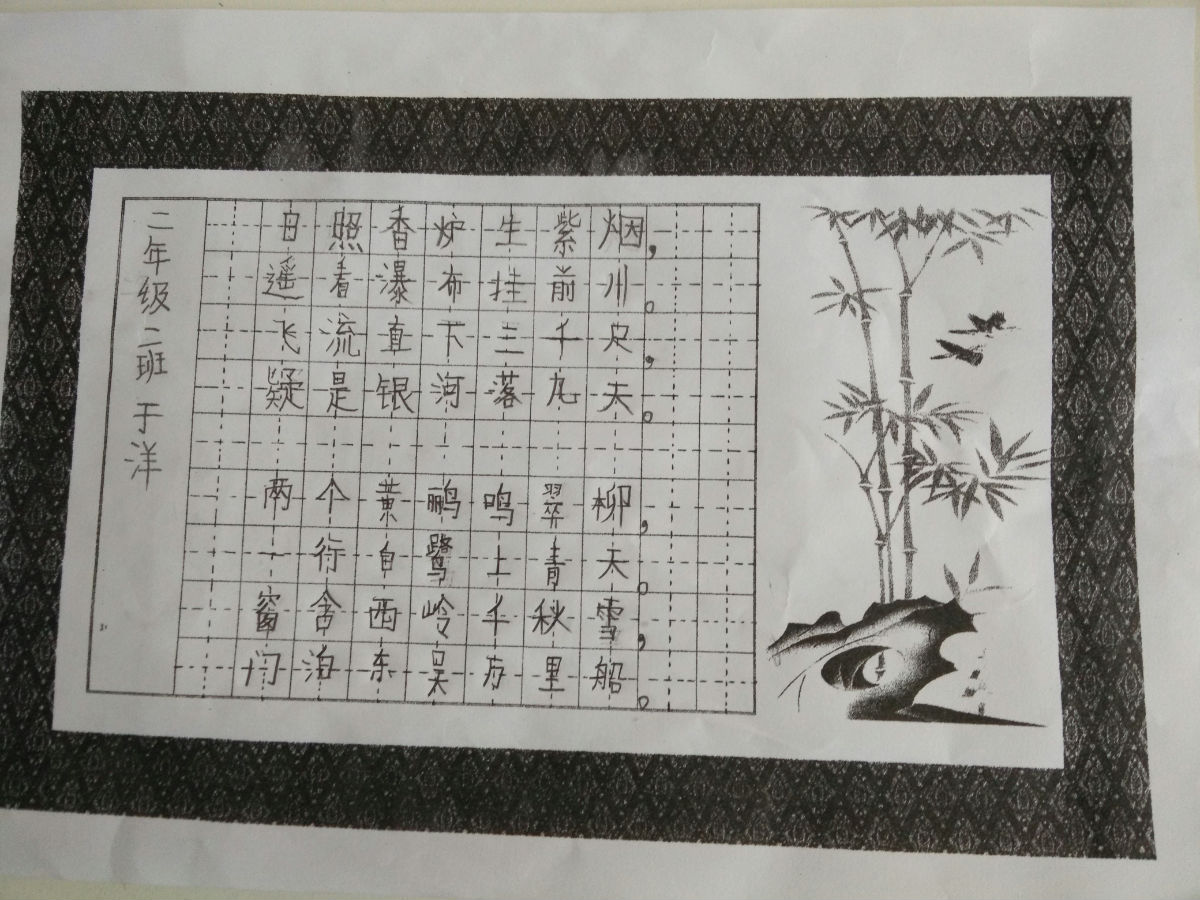 二年级二班 于洋
日照香炉生紫烟，
遥看瀑布挂前川。
飞流直下三千尺，
疑是银河落九天。
两个黄鹂鸣翠柳，
一行自鹭上青天。
窗含西岭千秋雪，
门泊东吴万里船。